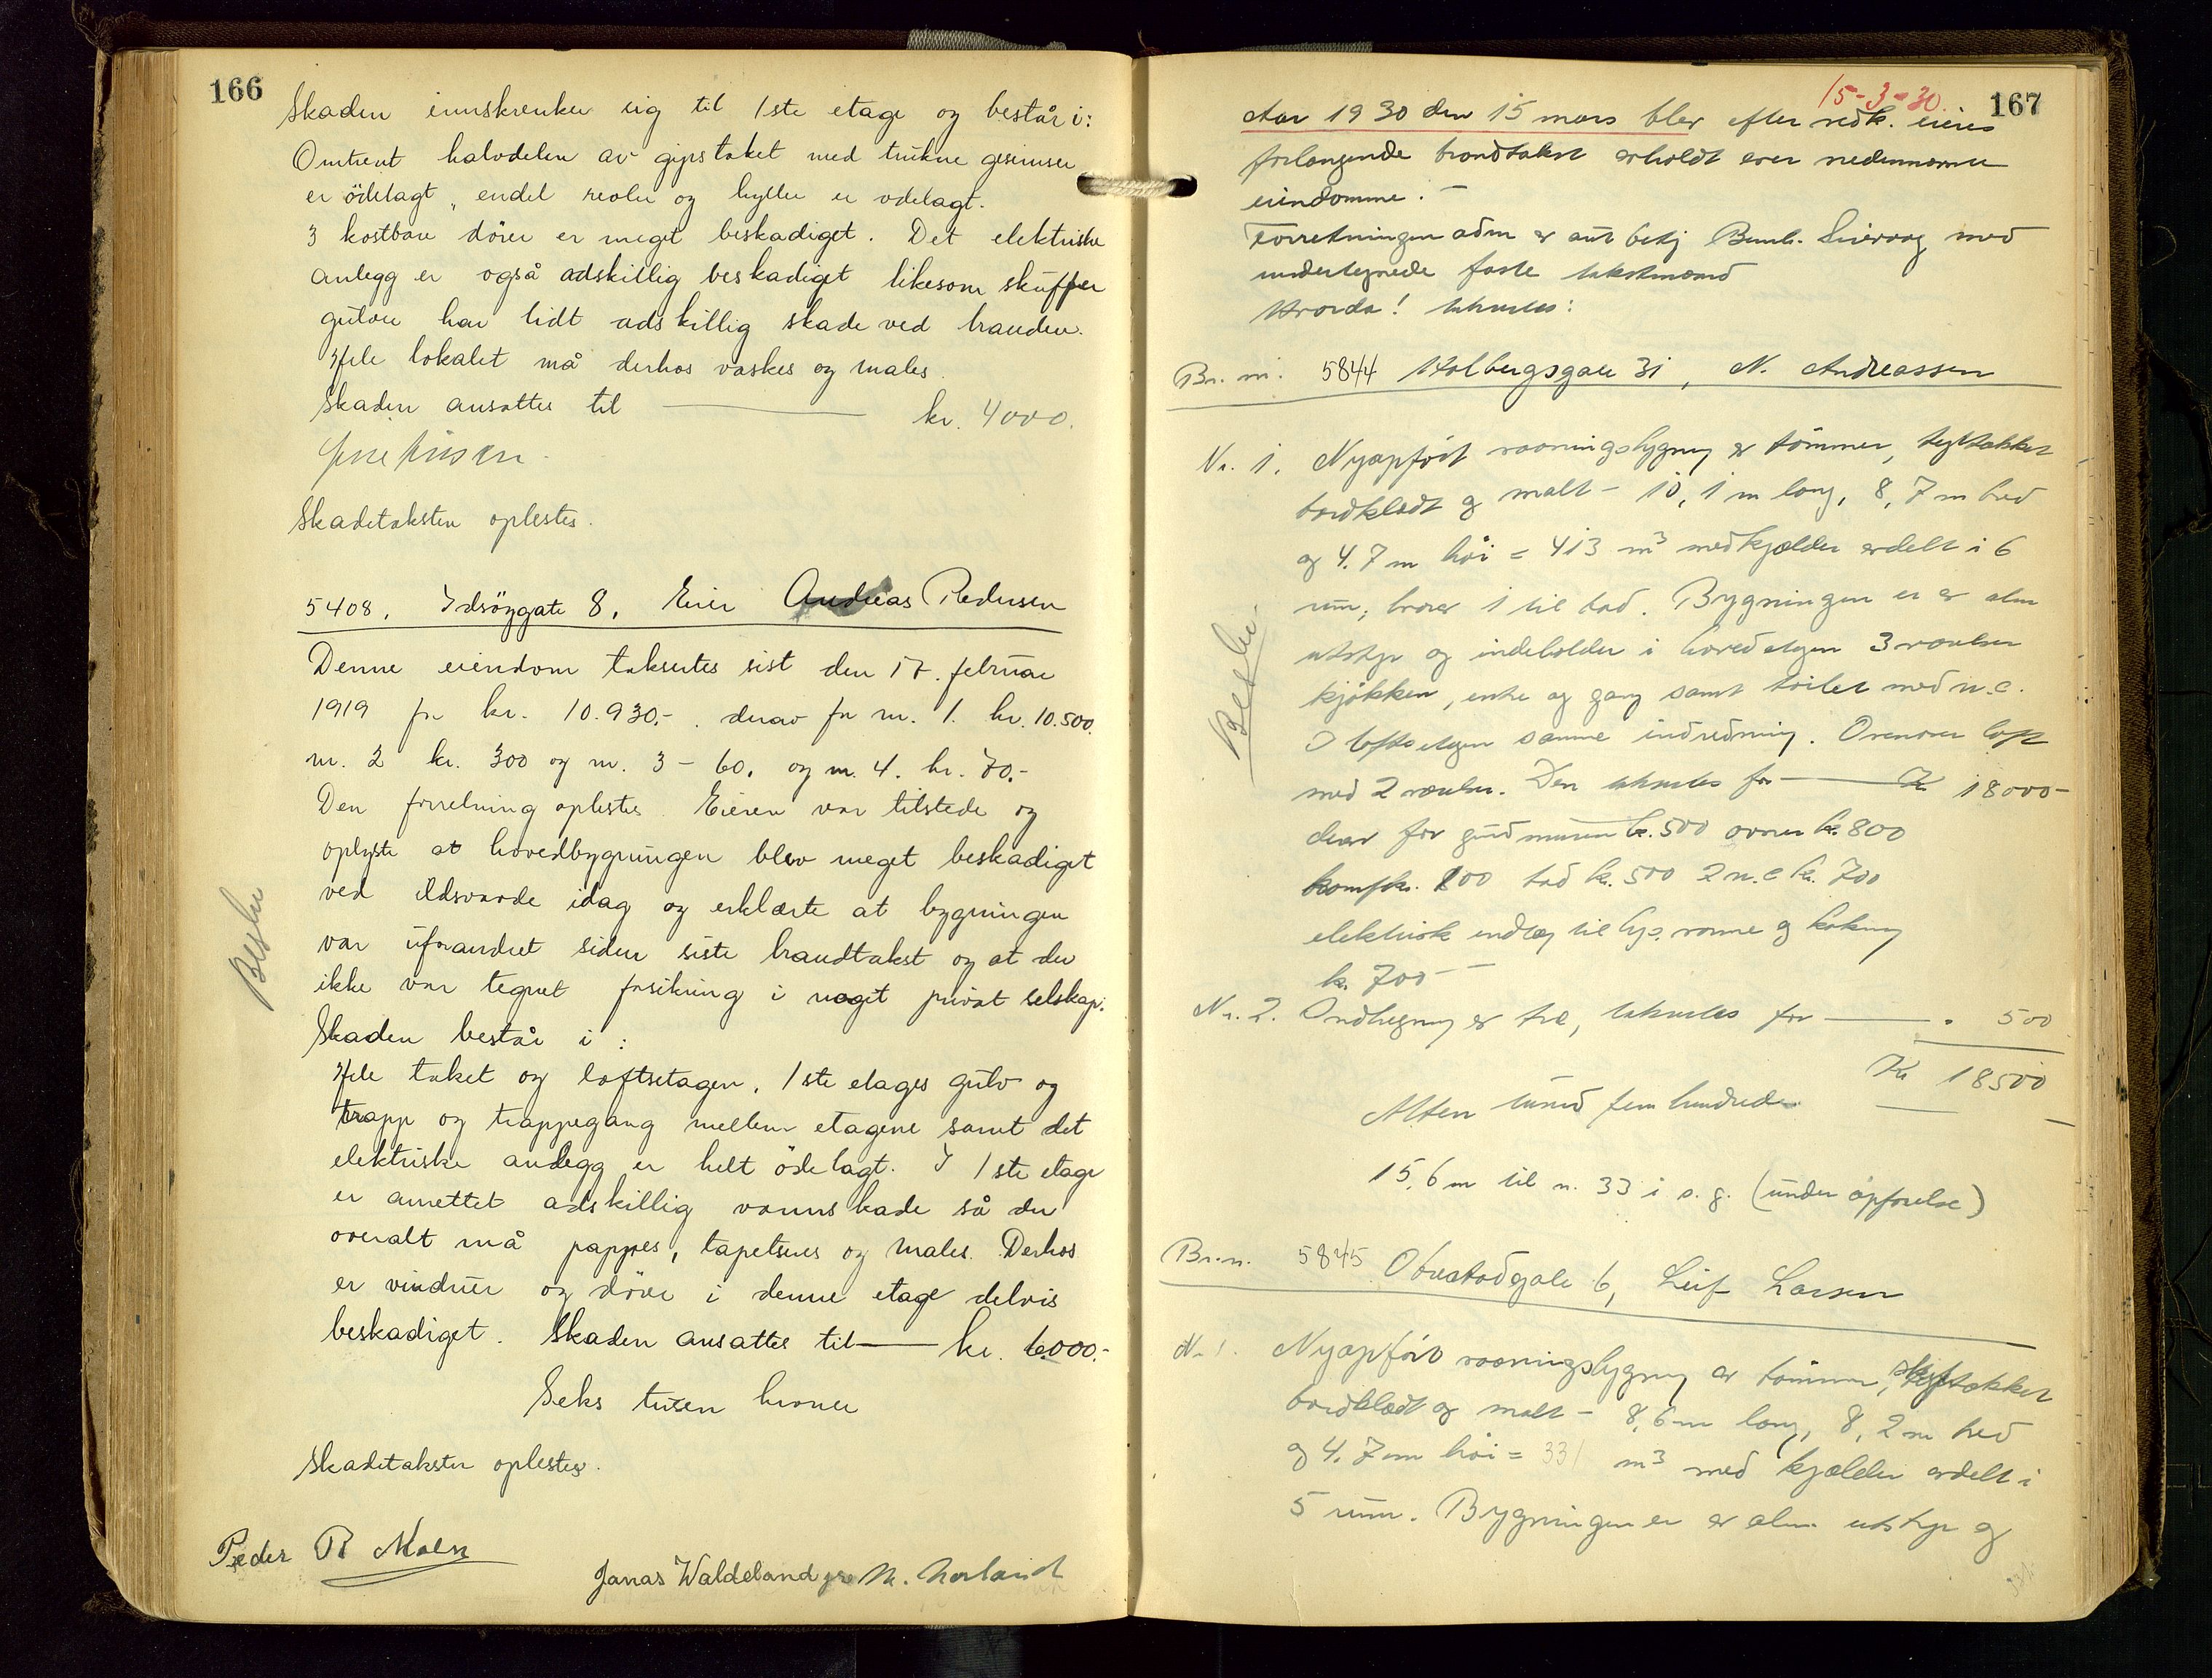 166
Skaden innskrenker sig til 1ste etage og består i:
Omtrent halvdelen av gipstaket med trukne gesimser
er ödelagt, endel reoler og hyller er ödelagt.
3 kostbare dörer er meget beskadiget. Det elektriske
anlegg er også adskillig beskadiget likesom skuffer
gulvene har lidt adskillig skade ved branden.
Hele lokalet må derhos vaskes og males.
Skaden ansattes til — kr. 4000.
Skadetaksten oplestes.
5408, Idsöygate 8, Eier Andreas Pedersen
Denne eiendom taksertes sist den 17. februar
1919 for kr. 10.930.- derav for nr. 1. kr. 10.500.
nr. 2 kr. 300 og nr. 3 - 60. og nr. 4. kr. 70.-
Den forretning oplestes. Eieren var tilstede og
oplyste at hovedbygningen blev meget beskadiget
ved ildsvaade idag og erklærte at bygningen
var uforandret siden siste brandtakst og at der
ikke var tegnet forsikring i noget privat selskap.
Skaden består i :
Hele taket og loftsetagen, 1ste etages gulv og
trapp og trappegang mellem etagene samt det
elektriske anlegg er helt ödelagt. I 1ste etage
er anrettet adskillig vannskade så der
overalt må pappes, tapetseres og males. Derhos
er vinduer og dörer i denne etage delvis
beskadiget. Skaden ansattes til — kr. 6.000.-
Seks tusen kroner
Skadetaksten oplestes.
Peder R Malen
Jonas Waldeland jre M. Norland
15-3-30.
167
Aar 1930 den 15 mars blev efter vedk. eieres
forlangende brandtakst avholdt over nedennævnte
eiendomme.-
Forretningen adm av aut betj Bernh. Sivervag med
undertegnede faste takstmænd
Hvorda! takseres:
Br. nr. 5844 Holbergsgate 31, N. Andreassen
Nr. 1. Nyopfört vaaningsbygning av tömmer, tegltækket
bordklædt og malt - 10,1 m lang, 8,7 m bred
og 4.7 m höi = 413 m3 med kjælder avdelt i 6
rum, hvorav 1 til bad. Bygningen er av alm
utstyr og indeholder i hovedetagen 3 værelser
kjökken, entre og gang samt toilet med w.c.
I loftsetagen samme indredning. Ovenover loft
med 2 værelser. Den takseres for — Kr. 18000-
derav for grundmuren kr. 500 ovner kr. 800
komfkr. 100 bad kr. 500 2 w.c kr. 700
elektrisk indlæg til lys, varme og kokning
kr. 700-
Nr. 2. Indhegning av træ, takseres for — " 500
Kr 18500
Atten tusend fem hundrede
15,6 m til nr. 33 i s. g. (under opförelse)
Br. n. 5845 Obrestadgate 6, Leif Larsen
Nr 1. Nyopfört vaaningsbygning av tömmer, skifertækket
bordklædt og malt - 8,6 m lang, 8,2 m bred
og 4.7 m höi = 331 m3 med kjælder avdelt i
5 rum. Bygningen er av alm utstyr og